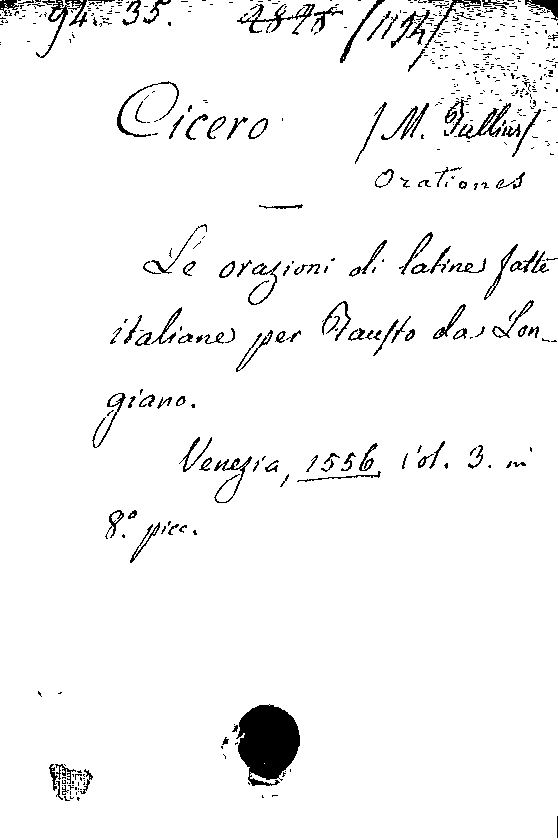 94. 35. 4848 /1194/
Cicero /M. Tullius/
Orationes
Le orazioni di latine fatte
italiane per Fausto da Lon-
giano.
Venezia, 1556, vol. 3. in
8.° picc.